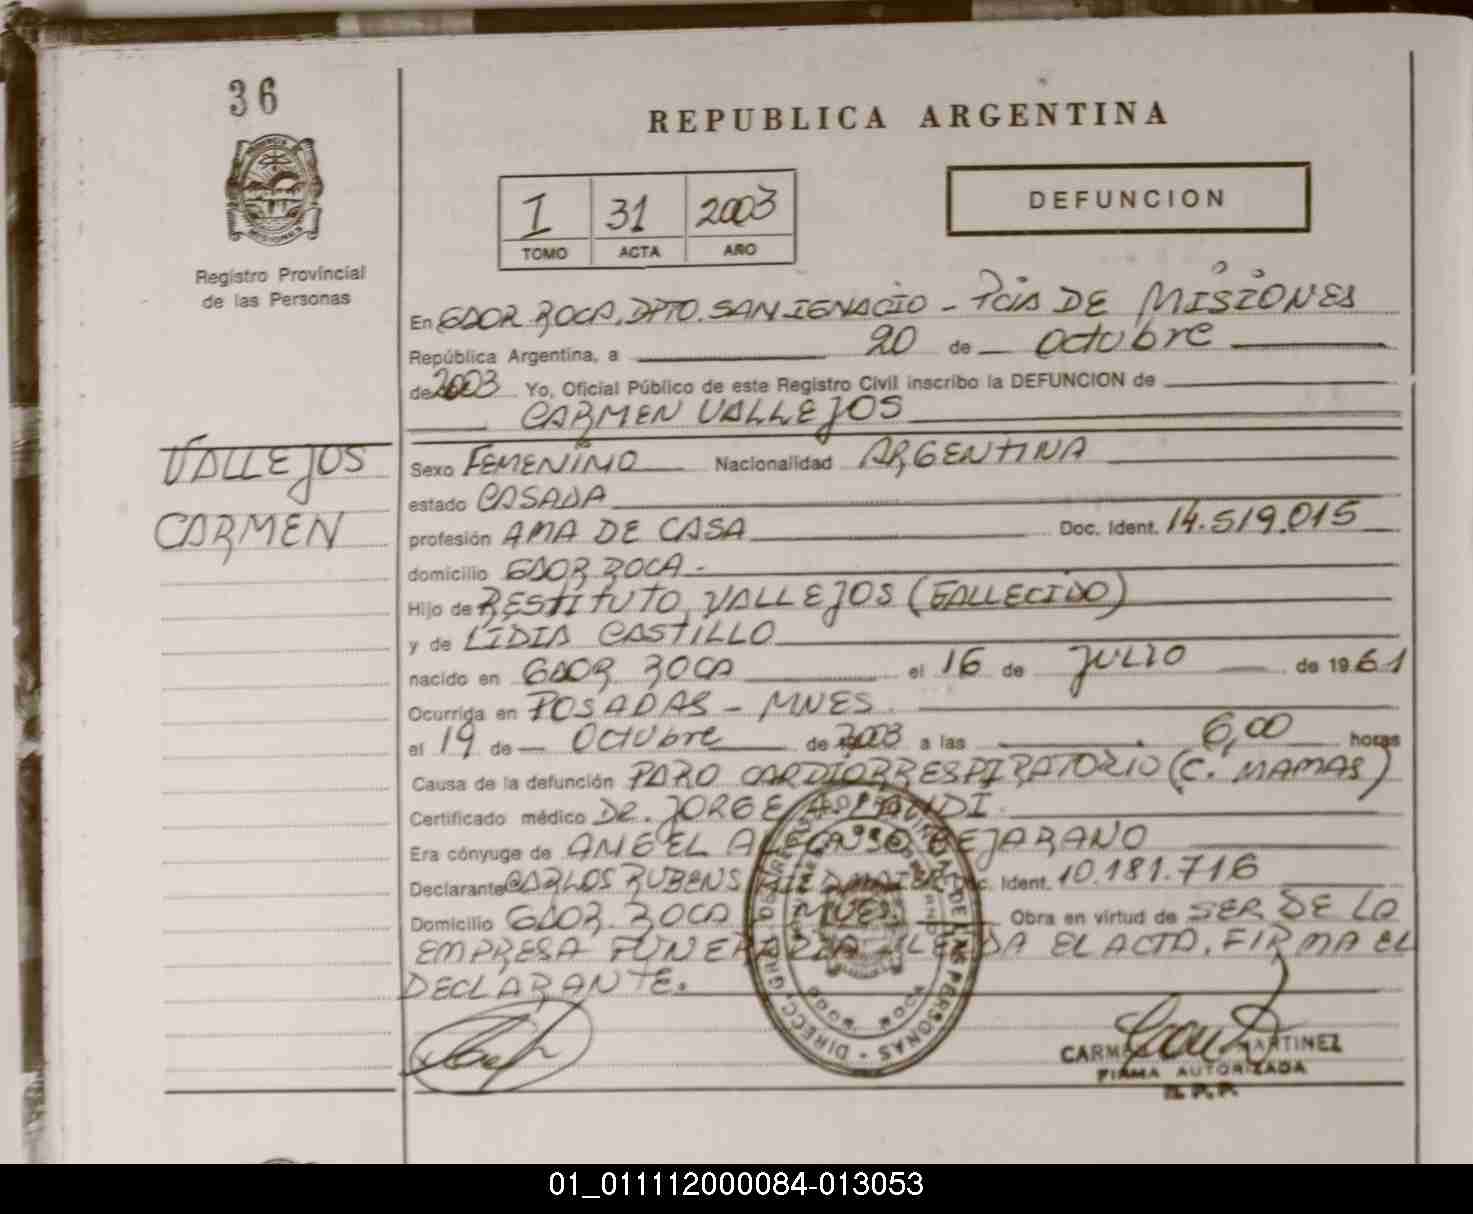 36
REPUBLICA ARGENTINA
I 31 2003
TOMO ACTA AÑO
DEFUNCION
Registro Provincial
de las Personas
En GDOR. ROCA, DPTO. SAN IGNACIO - PCIA DE MISIONES
República Argentina, a 20 de octubre
de 2003 Yo, Oficial Público de este Registro Civil inscribo la DEFUNCION de
CARMEN VALLEJOS
VALLEJOS
CARMEN
Sexo FEMENINO Nacionalidad ARGENTINA
estado CASADA
profesión AMA DE CASA Doc. Ident. 14.519.015
domicilio GDOR ROCA.-
Hijo de RESTITUTO VALLEJOS (FALLECIDO)
y de LIDIA CASTILLO
nacido en GDOR ROCA el 16 de JULIO de 1961
Ocurrida en POSADAS - MNES.
el 19 de Octubre de 2003 a las 6,00 horas
Causa de la defunción PARO CARDIORRESPIRATORIO (C. MAMAS)
Certificado médico DR. JORGE
Era cónyuge de ANGEL ALFONSO BEJARANO
Declarante CARLOS RUBENS Doc. Ident. 10.181.716
Domicilio GDOR. ROCA MNES. Obra en virtud de SER DE LA
EMPRESA FUNERARIA LEIDA EL ACTA, FIRMA EL
DECLARANTE.
DIRECC. GRAL. DEL REGISTRO PROVINCIAL DE LAS PERSONAS
MARTINEZ
FIRMA AUTORIZADA
R.P.P.
01_011112000084-013053